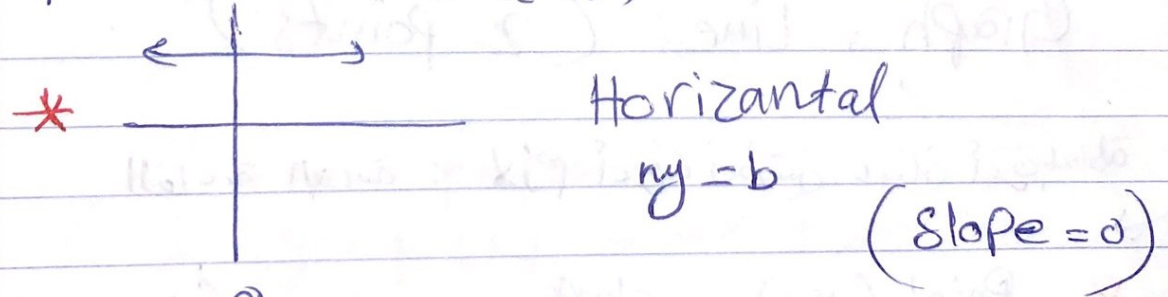 Horizantal
ny = b
(Slope = 0)